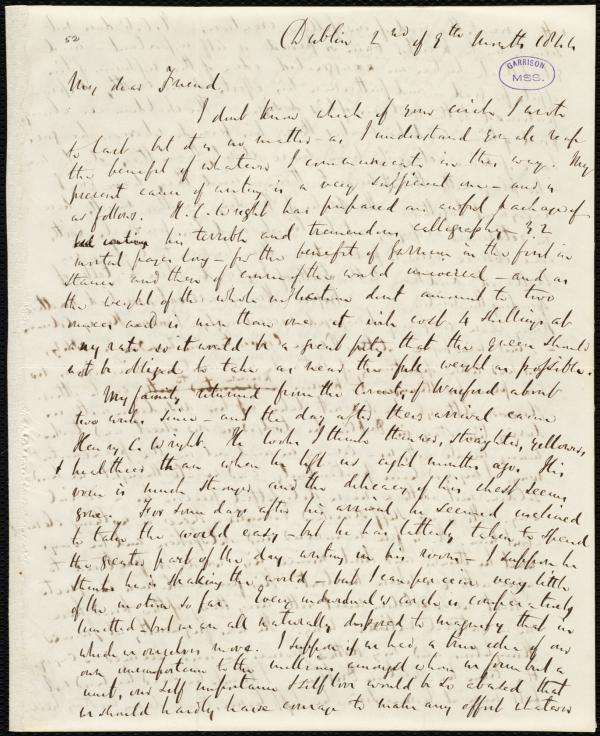 52
Dublin 2nd of 9th month 1844
GARRISON
MSS.
My dear Friend,
I don't know which of your circle I wrote
to last but it is no matter as I understand you all reap
the benefit of whatever I communicate in this way. My
present cause of writing is a very sufficient one - and is
as follows. H. C. Wright has prepared an awful package of
his terrible and tremendous calligraphy - 32
mortal pages long - for the benefit of Garrison in the first in
stance and then of the world universal - and as
the weight of the whole dont amount to two
ounces and is more than one it will cost 4 shillings at
any rate so it would be a great pity that the queen should
not be obliged to take as near the full weight as possible.
My family returned from the County of Wexford about
two weeks since - and the day after their arrival came
Henry C. Wright. He looks I think thinner, straighter, yellower,
& healthier than when he left us eight months ago. His
voice is much stronger and the delicacy of his chest seems
gone. For some days after his arrival he seemed inclined
to take the world easy - but he has latterly taken to spend
the greater part of the day writing in his room - I suppose he
thinks he is shaking the world - but I can perceive very little
of the motion so far. Every individual's circle is comparatively
limited - but we are all naturally disposed to magnify that in
which we ourselves move. I suppose if we had a true idea of our
own unimportance to the millions amongst whom we form but a
unit, our self importance & self love would be so abated that
we should hardly have courage to make any effort whatever